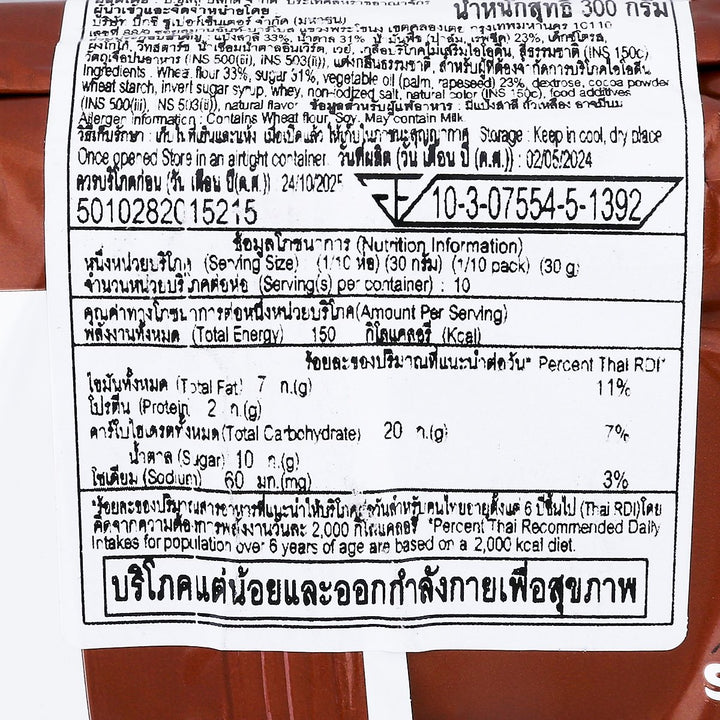 น้ำหนักสุทธิ 300 กรัม
ผู้นำเข้าและจัดจำหน่ายโดย
บริษัท บิ๊กซี ซูเปอร์เซ็นเตอร์ จำกัด (มหาชน)
แป้งสาลี 33%, น้ำตาล 31% 23%, เด็กซ์โตรส,
(INS 150c)
วัตถุเจือปนอาหาร (INS 500(ii), INS 503(ii)), แต่งกลิ่นธรรมชาติ, สำหรับผู้ที่ต้องจำกัดการบริโภคไอโอดีน
Ingredients : Wheat flour 33%, sugar 31%, vegetable oil (palm, rapeseed) 23%, dextrose, cocoa powder
wheat starch, invert sugar syrup, whey, non-iodized salt, natural color (INS 150c), food additives
(INS 500(ii), INS 503(ii)), natural flavor ข้อมูลสำหรับผู้แพ้อาหาร : มีแป้งสาลี ถั่วเหลือง อาจมีนม
Allergen information : Contains Wheat flour, Soy. May contain Milk
วิธีเก็บรักษา : เก็บในที่เย็นและแห้ง เมื่อเปิดแล้ว ให้เก็บในภาชนะสุญญากาศ Storage : Keep in cool, dry place
Once opened Store in an airtight container. วันที่ผลิต (วัน เดือน ปี (ค.ศ.)) : 02/05/2024
ควรบริโภคก่อน (วัน เดือน ปี(ค.ศ.)) : 24/10/2025
5010282015215
10-3-07554-5-1392
ข้อมูลโภชนาการ (Nutrition Information)
หนึ่งหน่วยบริโภค (Serving Size) (1/10 ห่อ) (30 กรัม) (1/10 pack) (30 g)
จำนวนหน่วยบริโภคต่อห่อ (Serving(s) per container) : 10
คุณค่าทางโภชนาการต่อหนึ่งหน่วยบริโภค(Amount Per Serving)
พลังงานทั้งหมด (Total Energy) 150 กิโลแคลอรี (Kcal)
ร้อยละของปริมาณที่แนะนำต่อวัน* Percent Thai RDI*
ไขมันทั้งหมด (Total Fat) 7 ก.(g) 11%
โปรตีน (Protein) 2 ก.(g)
คาร์โบไฮเดรตทั้งหมด(Total Carbohydrate) 20 ก.(g) 7%
น้ำตาล (Sugar) 10 ก.(g)
โซเดียม (Sodium) 60 มก.(mg) 3%
*ร้อยละของปริมาณสารอาหารที่แนะนำให้บริโภคต่อวันสำหรับคนไทยอายุตั้งแต่ 6 ปีขึ้นไป (Thai RDI)โดย
คิดจากความต้องการพลังงานวันละ 2,000 กิโลแคลอรี *Percent Thai Recommended Daily
Intakes for population over 6 years of age are based on a 2,000 kcal diet.
บริโภคแต่น้อยและออกกำลังกายเพื่อสุขภาพ